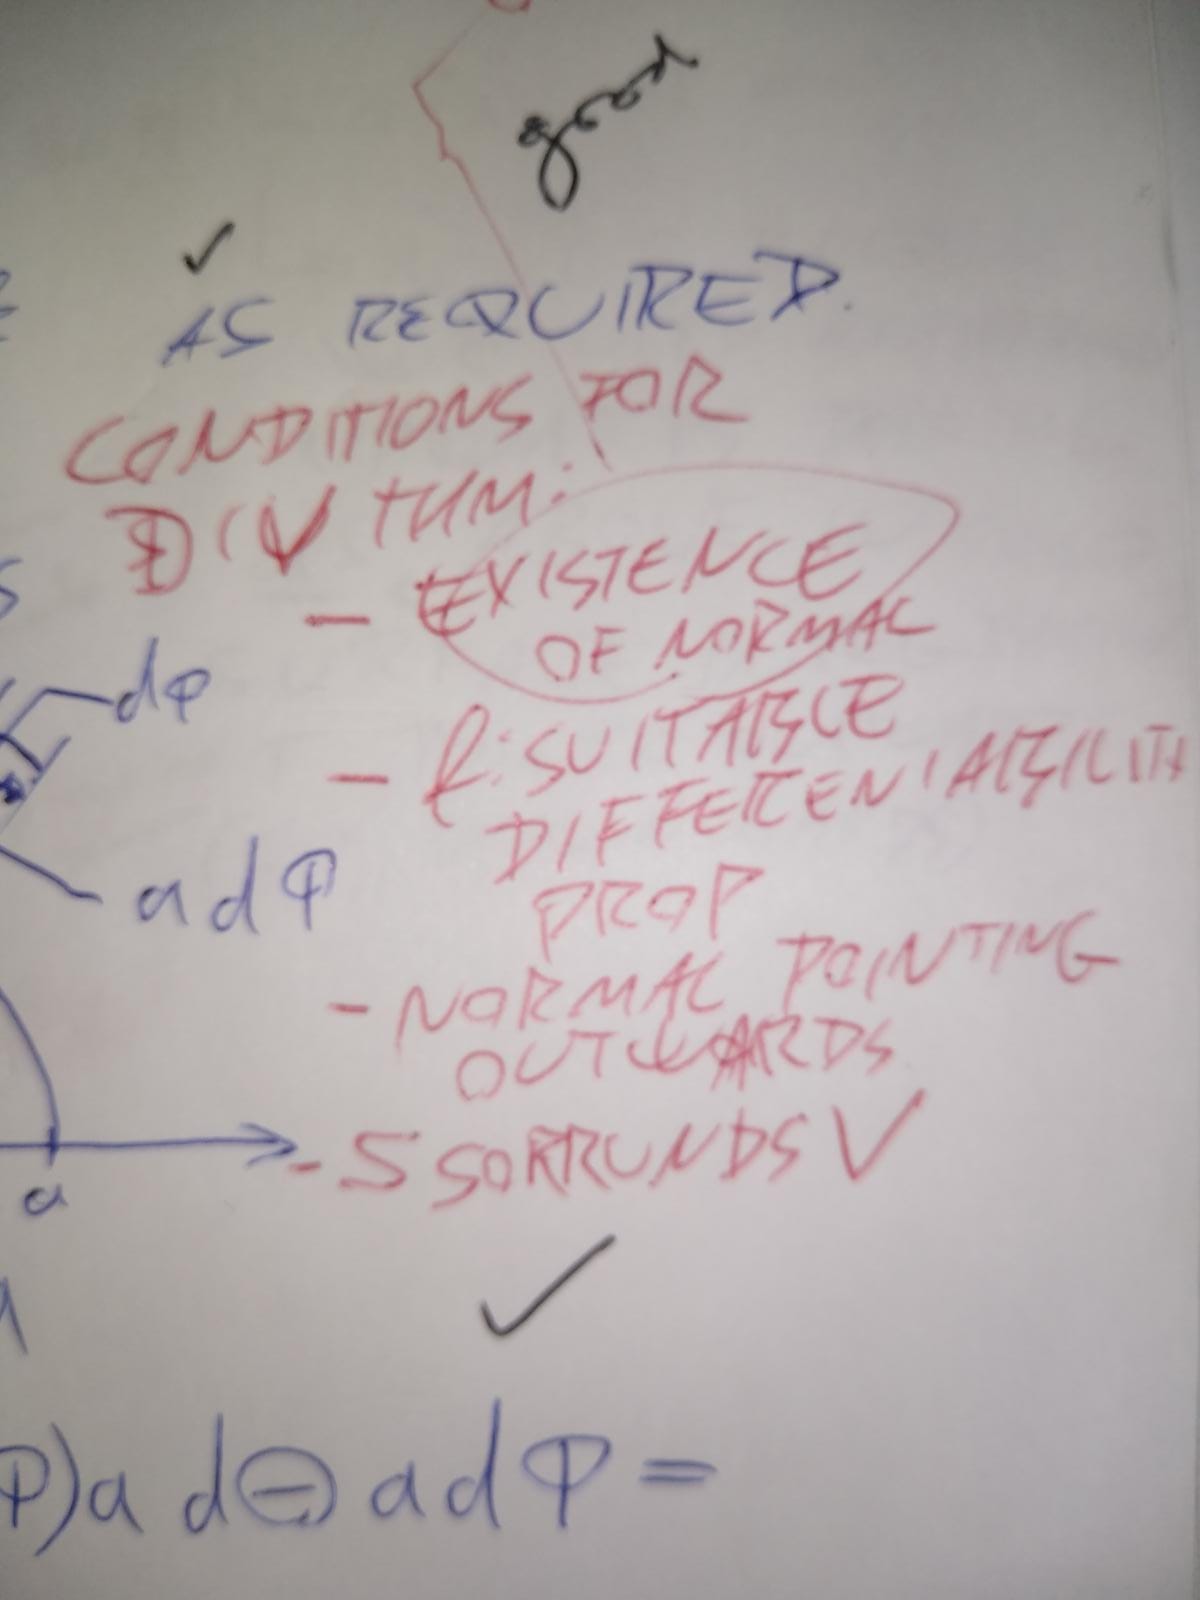 good
AS REQUIRED.
CONDITIONS FOR
DIV THM:
- EXISTENCE
OF NORMAL
dφ
- f: SUITABLE
DIFFERENTIABILITY
PROP
adφ
- NORMAL POINTING
OUTWARDS
- S SORRUNDS V
a
φ)a dΘ adφ =